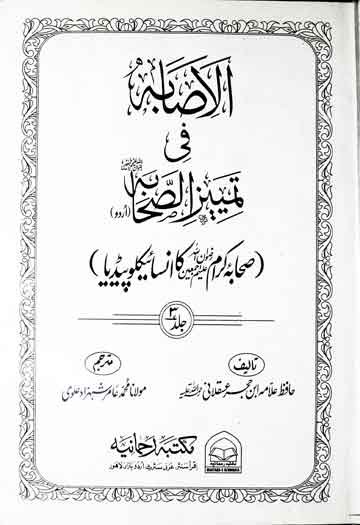 الاصابہ
فی
تمییز الصحابہ (اُردو)
(صحابہ کرام رضوان اللہ علیہم اجمعین کا انسائیکلوپیڈیا)
جلد ۳
تالیف
حافظ علامہ ابن حجر عسقلانی رحمۃ اللہ علیہ
مترجم
مولانا محمد عامر شہزاد علوی
مکتبہ رحمانیہ
اقرأ سنٹر غزنی سٹریٹ اردو بازار لاہور